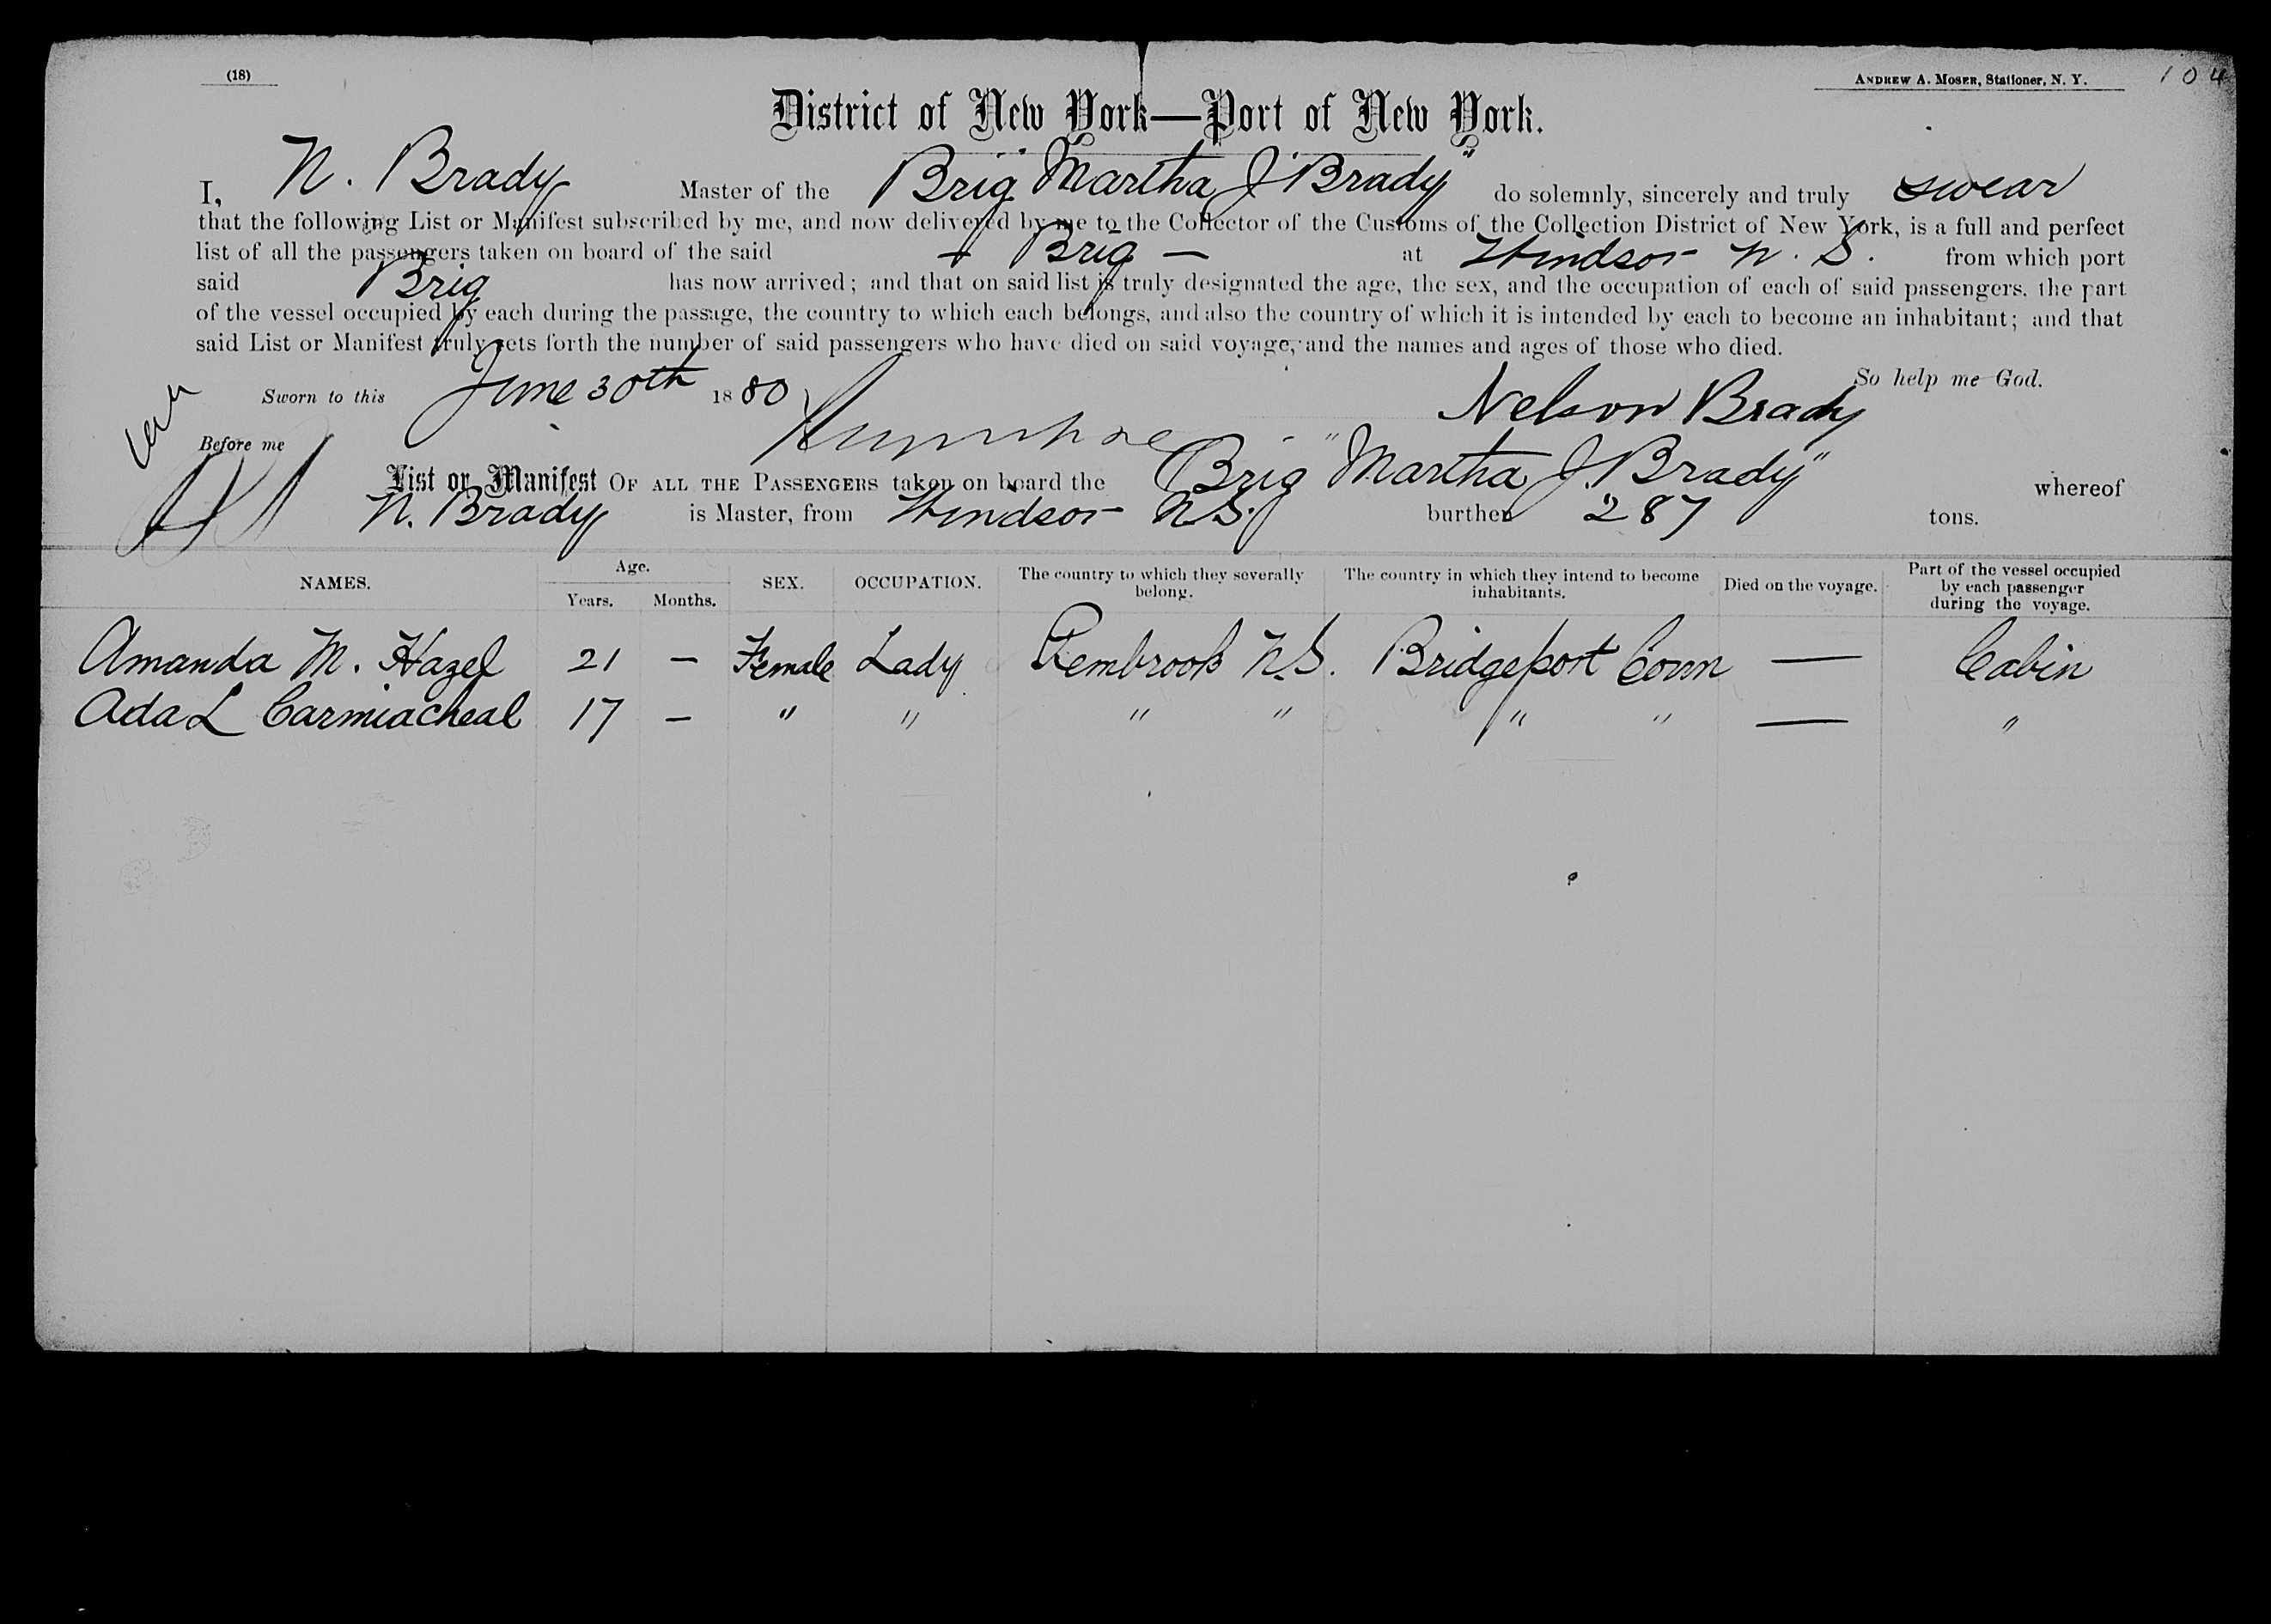 (18)
ANDREW A. MOSER, Stationer, N. Y.
104
District of New York—Port of New York.
I, N. Brady Master of the Brig "Martha J. Brady" do solemnly, sincerely and truly swear
that the following List or Manifest subscribed by me, and now delivered by me to the Collector of the Customs of the Collection District of New York, is a full and perfect
list of all the passengers taken on board of the said — Brig — at Windsor N. S. from which port
said Brig has now arrived; and that on said list is truly designated the age, the sex, and the occupation of each of said passengers, the part
of the vessel occupied by each during the passage, the country to which each belongs, and also the country of which it is intended by each to become an inhabitant; and that
said List or Manifest truly sets forth the number of said passengers who have died on said voyage, and the names and ages of those who died.
So help me God.
Sworn to this June 30th 1880 Nelson Brady
Before me
List or Manifest OF ALL THE PASSENGERS taken on board the Brig "Martha J. Brady" whereof
N. Brady is Master, from Windsor N.S. burthen 287 tons.
NAMES. Age. Years. Months. SEX. OCCUPATION. The country to which they severally belong. The country in which they intend to become inhabitants. Died on the voyage. Part of the vessel occupied by each passenger during the voyage.
Amanda M. Hazel 21 — Female Lady Pembrook N.S. Bridgeport Conn — Cabin
Ada L Carmiacheal 17 — " " " " " " — "